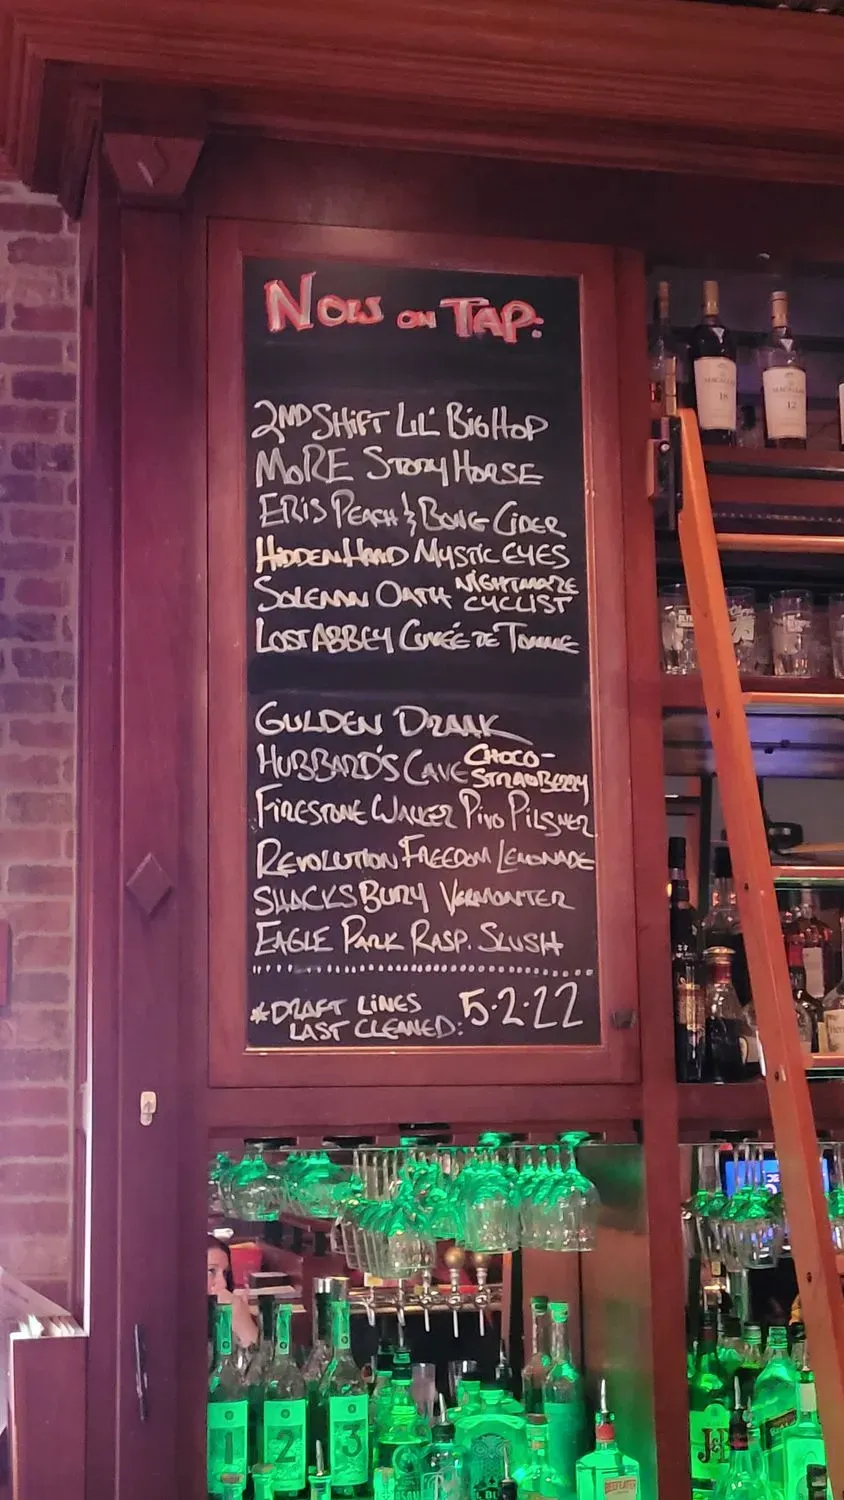 Now on TAP:
2ND SHIFT LIL' BIG HOP
MORE STORY HORSE
ERIS PEACH & BONG CIDER
HIDDEN HAND MYSTIC EYES
SOLEMN OATH NIGHTMARE
CYCLIST
LOST ABBEY CUVÉE DE TOMME
GULDEN DRAAK
HUBBARD'S CAVE CHOCO-
STRAWBERRY
FIRESTONE WALKER PIVO PILSNER
REVOLUTION FREEDOM LEMONADE
SHACKSBURY VERMONTER
EAGLE PARK RASP. SLUSH
*DRAFT LINES
LAST CLEANED: 5·2·22
MACALLAN
18
12
1
2
3
J&B
BEEFEATER